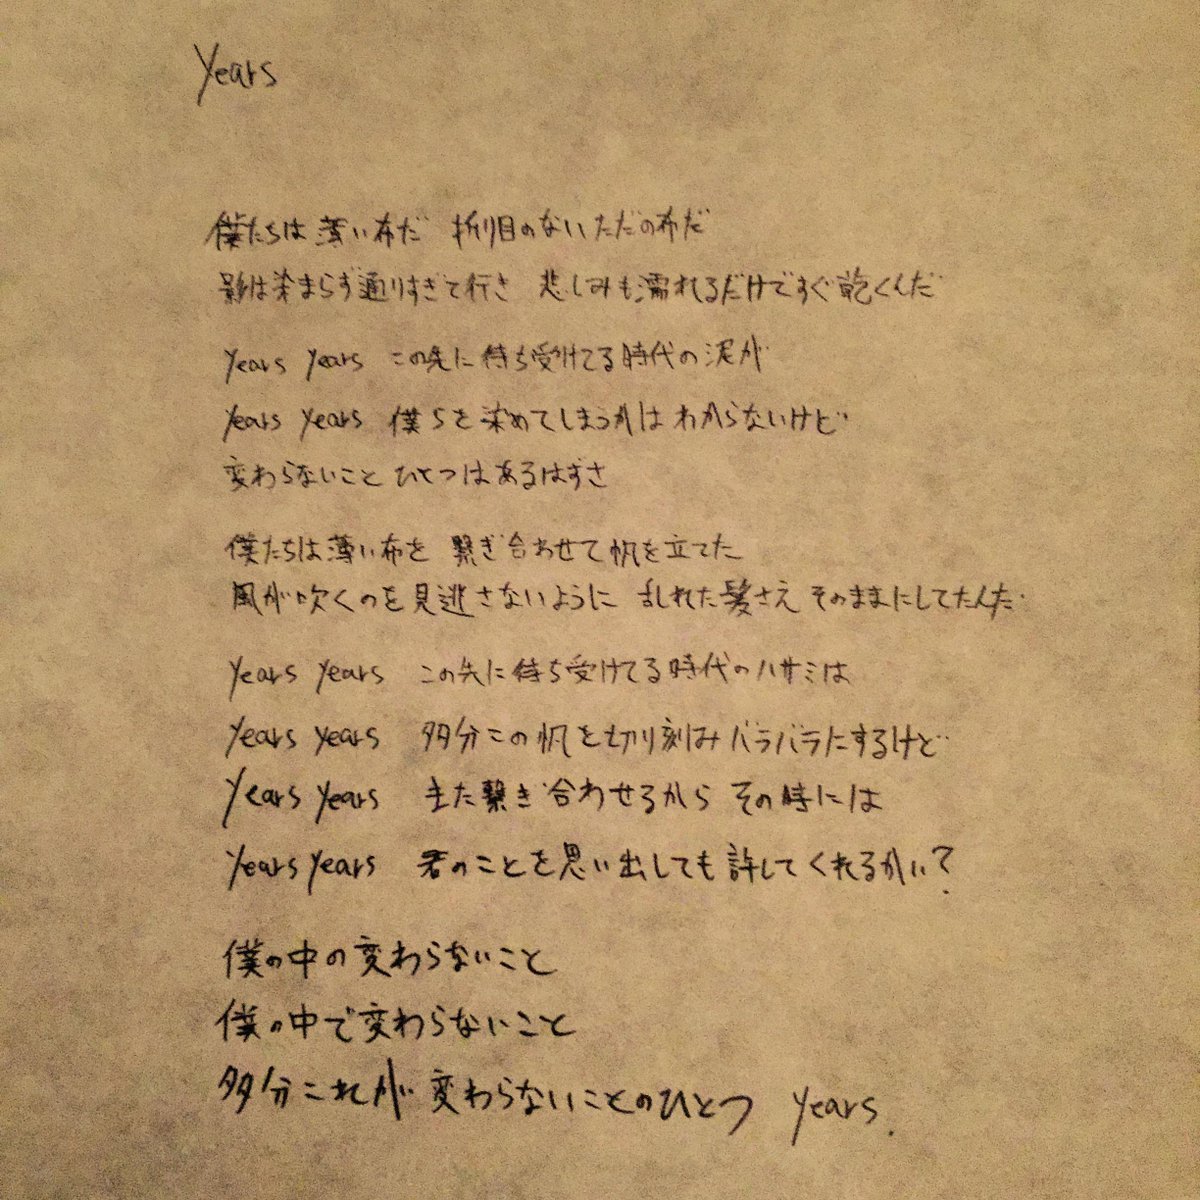 Years
僕たちは薄い布だ 折り目のないただの布だ
影は染まらず通りすぎて行き 悲しみも濡れるだけですぐ乾くんだ
Years Years この先に待ち受けてる時代の泥が
Years Years 僕らを染めてしまうかはわからないけど
変わらないこと ひとつはあるはずさ
僕たちは薄い布を 繋ぎ合わせて帆を立てた
風が吹くのを見逃さないように 乱れた髪さえ そのままにしてたんだ
Years Years この先に待ち受けてる時代のハサミは
Years Years 多分この帆を切り刻みバラバラにするけど
Years Years また繋ぎ合わせるから その時には
Years Years 君のことを思い出しても許してくれるかい？
僕の中の変わらないこと
僕の中で変わらないこと
多分これが変わらないことのひとつ Years.